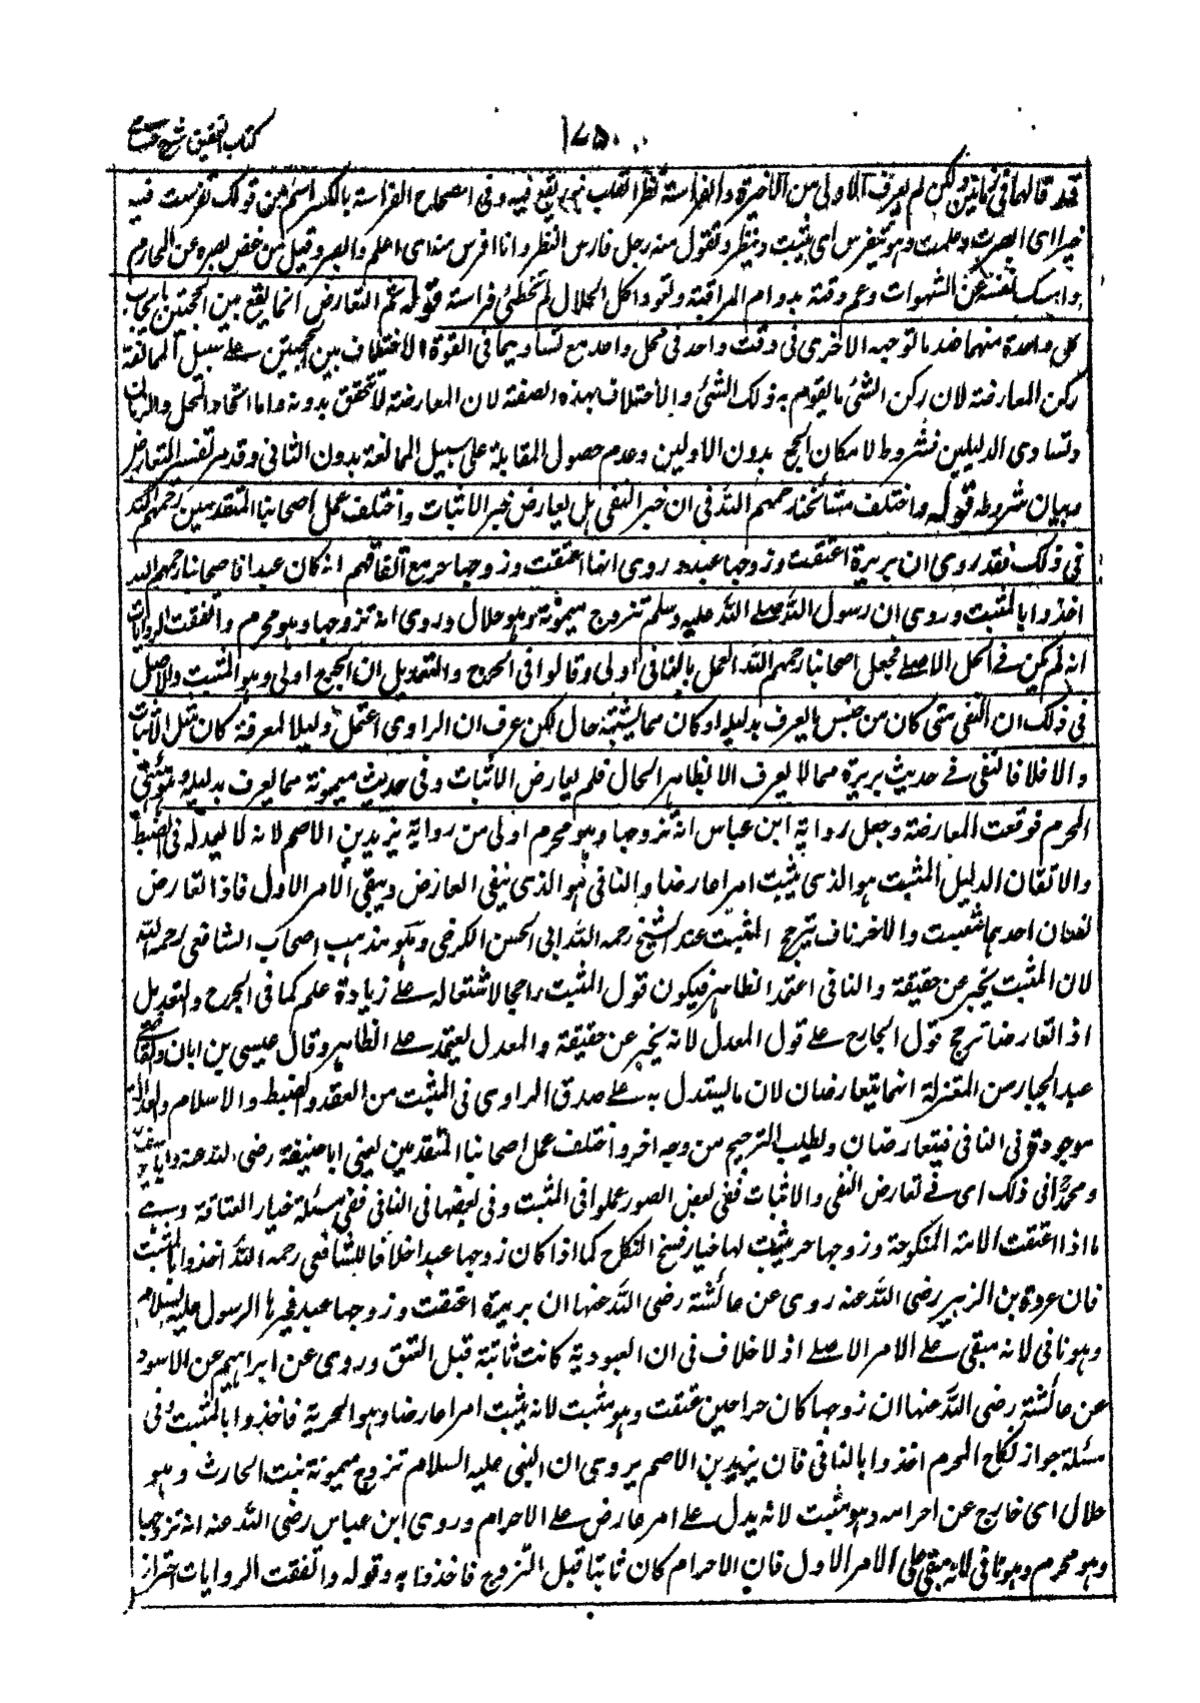 كتاب التحقيق شرح حسامي
١٧٥
قد قالهما في زمانين ولكن لم يعرف الاولى من الاخيرة والفراسة نظر القلب بنور يقع فيه وفي الصحاح الفراسة بالكسر اسم من قولك تفرست فيه
خيرا اى ابصرت وعلمت وهو يتفرس اى يثبت وينظر وتقول منه رجل فارس النظر وانا افرس منه اى اعلم وابصر وقيل من غض بصره عن المحارم
وامسك نفسه عن الشهوات وعمر وقته بدوام المراقبة وتعود اكل الحلال لم تخطئ فراسته قوله ثم التعارض انما يقع بين الحجتين بايجاب
كل واحدة منهما ضد ما توجبه الاخرى في وقت واحد في محل واحد مع تساويهما في القوة الاختلاف بين الحجتين على سبيل الممانعة
ركن المعارضة لان ركن الشئ ما يقوم به ذلك الشئ والاختلاف بهذه الصفة لان المعارضة لا تتحقق بدونه واما اتحاد المحل والزمان
وتساوى الدليلين فشروط لامكان الجمع بدون الاولين وعدم حصول المقابلة على سبيل الممانعة بدون الثاني وقد مر تفسير التعارض
وبيان شروطه قوله واختلف مشائخنا رحمهم الله في ان خبر النفي هل يعارض خبر الاثبات واختلف عمل اصحابنا المتقدمين رحمهم الله
في ذلك فقد روى ان بريرة اعتقت وزوجها عبد وروى انها اعتقت وزوجها حر مع اتفاقهم انه كان عبدا فاصحابنا رحمهم الله
اخذوا بالمثبت وروى ان رسول الله صلى الله عليه وسلم تزوج ميمونة وهو حلال وروى انه تزوجها وهو محرم واتفقت الروايات
انه لم يكن في الحل الاصلى فجعل اصحابنا رحمهم الله العمل بالنافي اولى وقالوا في الجرح والتعديل ان الجرح اولى وهو المثبت والاصل
في ذلك ان النفي متى كان من جنس ما يعرف بدليله او كان مما يشتبه حاله لكن عرف ان الراوى اعتمد دليلا لمعرفة كان مثل الاثبات
والا فلا فالنفي في حديث بريرة مما لا يعرف الا بظاهر الحال فلم يعارض الاثبات وفي حديث ميمونة مما يعرف بدليله وهو هيئة
المحرم فوقعت المعارضة وجعل رواية ابن عباس انه تزوجها وهو محرم اولى من رواية يزيد بن الاصم لانه لا يعدله في الضبط
والاتقان الدليل المثبت هو الذى يثبت امرا عارضا والنافي هو الذى ينفي العارض ويبقي الامر الاول فاذا تعارض
نصان احدهما مثبت والاخر ناف يترجح المثبت عند الشيخ رحمه الله ابي الحسن الكرخي وهو مذهب اصحاب الشافعي رحمه الله
لان المثبت يخبر عن حقيقة والنافي اعتمد الظاهر فيكون قول المثبت راجحا لاشتماله على زيادة علم كما في الجرح والتعديل
اذا تعارضا ترجح قول الجارح على قول المعدل لانه يخبر عن حقيقة والمعدل يعتمد على الظاهر وقال عيسى بن ابان والقاضي
عبد الجبار من المعتزلة انهما يتعارضان لان ما يستدل به على صدق الراوى في المثبت من العقد والضبط والاسلام والعدالة
موجودة في النافي فيتعارضان ويطلب الترجيح من وجه اخر واختلف عمل اصحابنا المتقدمين يعني ابا حنيفة رضى الله عنه وابا يوسف
ومحمدا في ذلك اى في تعارض النفي والاثبات ففي بعض الصور عملوا في المثبت وفي بعضها في النافي ففي مسئلة خيار العتاقة وهى
ما اذا اعتقت الامة المنكوحة وزوجها حر يثبت لها خيار فسخ النكاح كما اذا كان زوجها عبدا خلافا للشافعي رحمه الله اخذوا بالمثبت
فان عروة بن الزبير رضى الله عنه روى عن عائشة رضى الله عنها ان بريرة اعتقت وزوجها عبد فخيرها الرسول عليه السلام
وهو نافي لانه مبقي على الامر الاصلى اذ لا خلاف في ان العبودية كانت ثابتة قبل العتق وروى عن ابراهيم عن الاسود
عن عائشة رضى الله عنها ان زوجها كان حرا حين عتقت وهو مثبت لانه يثبت امرا عارضا وهو الحرية فاخذوا بالمثبت وفي
مسئلة جواز نكاح المحرم اخذوا بالنافي فان يزيد بن الاصم يروى ان النبي عليه السلام تزوج ميمونة بنت الحارث وهو
حلال اى خارج عن احرامه وهو مثبت لانه يدل على امر عارض على الاحرام وروى ابن عباس رضى الله عنه انه تزوجها
وهو محرم وهو نافي لانه مبقي على الامر الاول فان الاحرام كان ثابتا قبل التزوج فاخذنا به وقوله واتفقت الروايات احتراز